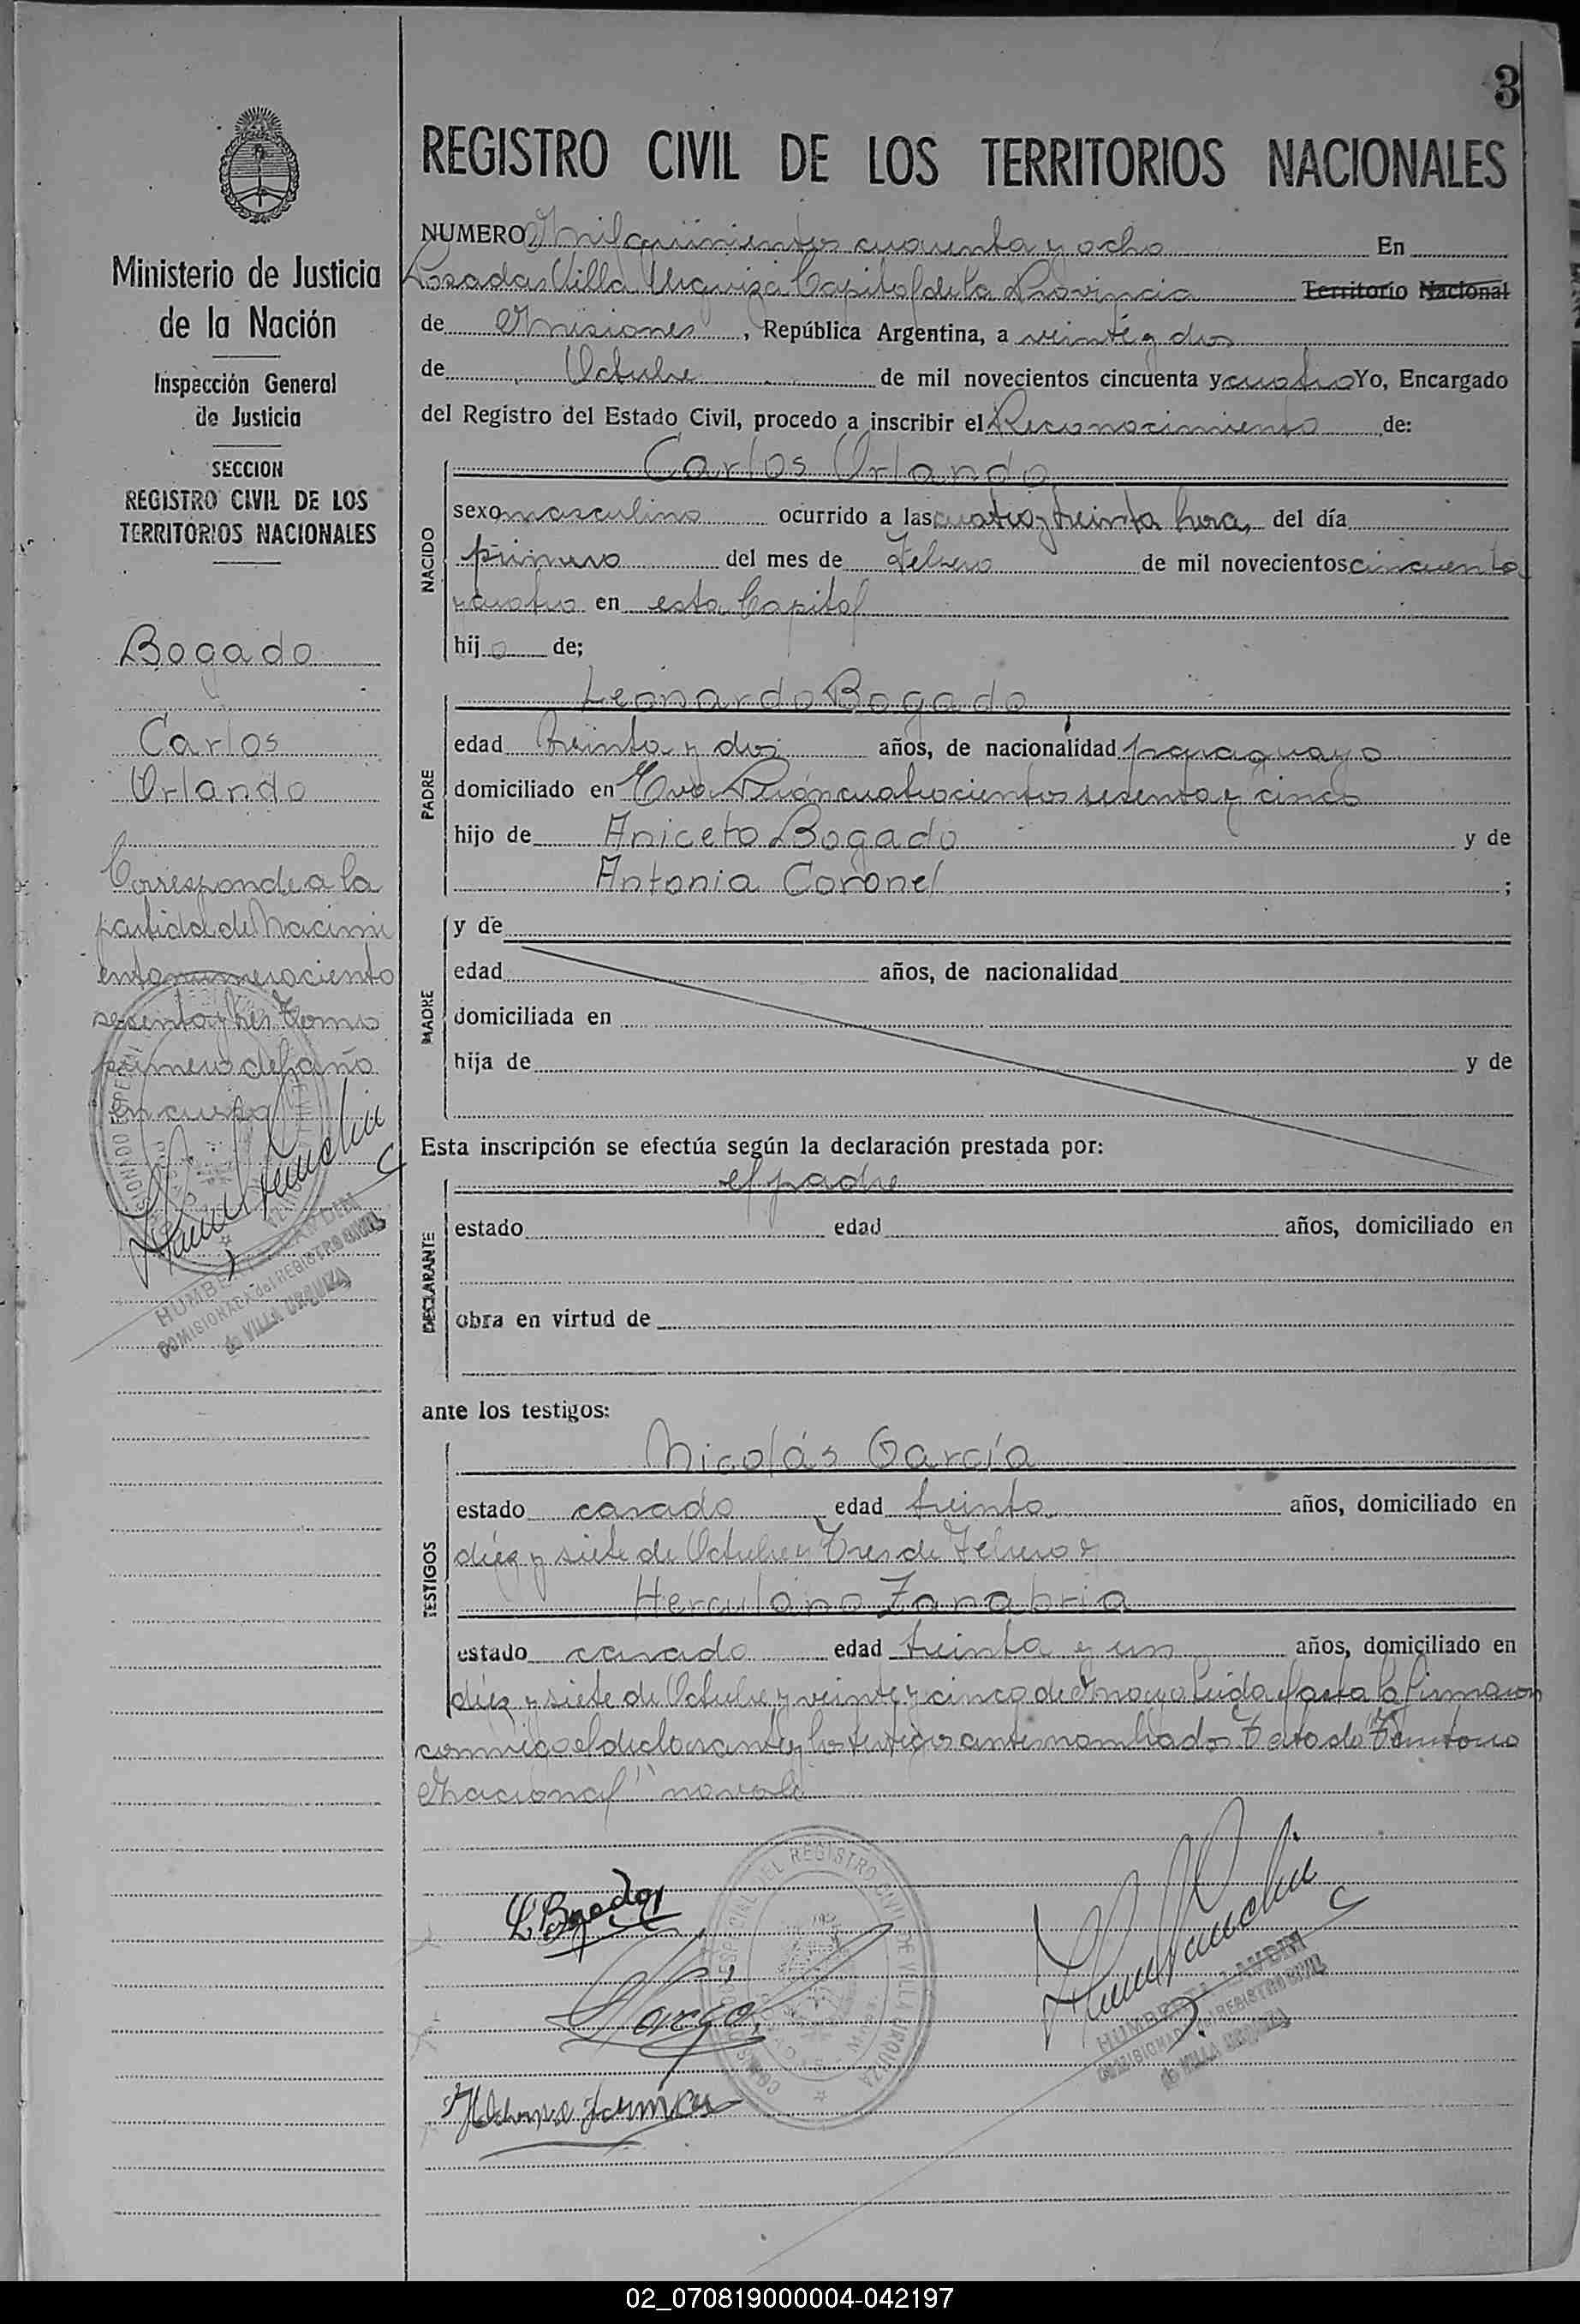 3
REGISTRO CIVIL DE LOS TERRITORIOS NACIONALES
Ministerio de Justicia
de la Nación
Inspección General
de Justicia
SECCION
REGISTRO CIVIL DE LOS
TERRITORIOS NACIONALES
Bogado
Carlos
Orlando
Corresponde a la
partida de Nacimi
ento numero ciento
sesenta y tres Tomo
primero del año
en curso
COMISIONADO del REGISTRO CIVIL
de VILLA URQUIZA
NUMERO Mil quinientos cuarenta y ocho En
Posadas Villa Urquiza Capital de la Provincia Territorio Nacional
de Misiones, República Argentina, a veinte y dos
de Octubre de mil novecientos cincuenta y cuatro Yo, Encargado
del Registro del Estado Civil, procedo a inscribir el Reconocimiento de:
NACIDO
Carlos Orlando
sexo masculino ocurrido a las cuatro y treinta horas, del día
primero del mes de Febrero de mil novecientos cincuenta
y cuatro en esta Capital
hijo de;
PADRE
Leonardo Bogado
edad treinta y dos años, de nacionalidad paraguayo
domiciliado en Eva Perón cuatrocientos sesenta y cinco
hijo de Aniceto Bogado y de
Antonia Coronel ;
MADRE
y de
edad años, de nacionalidad
domiciliada en
hija de y de
Esta inscripción se efectúa según la declaración prestada por:
DECLARANTE
el padre
estado edad años, domiciliado en
obra en virtud de
ante los testigos:
TESTIGOS
Nicolás García
estado casado edad treinta años, domiciliado en
diez y siete de Octubre y Tres de Febrero y
Herculano Zanabria
estado casado edad treinta y un años, domiciliado en
diez y siete de Octubre y veinte y cinco de Mayo Leida el acta la firmaron
conmigo el declarante y los testigos antes nombrados Testado "Territorio
Nacional" no vale
L Bogado
REGISTRO CIVIL DE VILLA URQUIZA
COMISIONADO del REGISTRO CIVIL
de VILLA URQUIZA
02_070819000004-042197